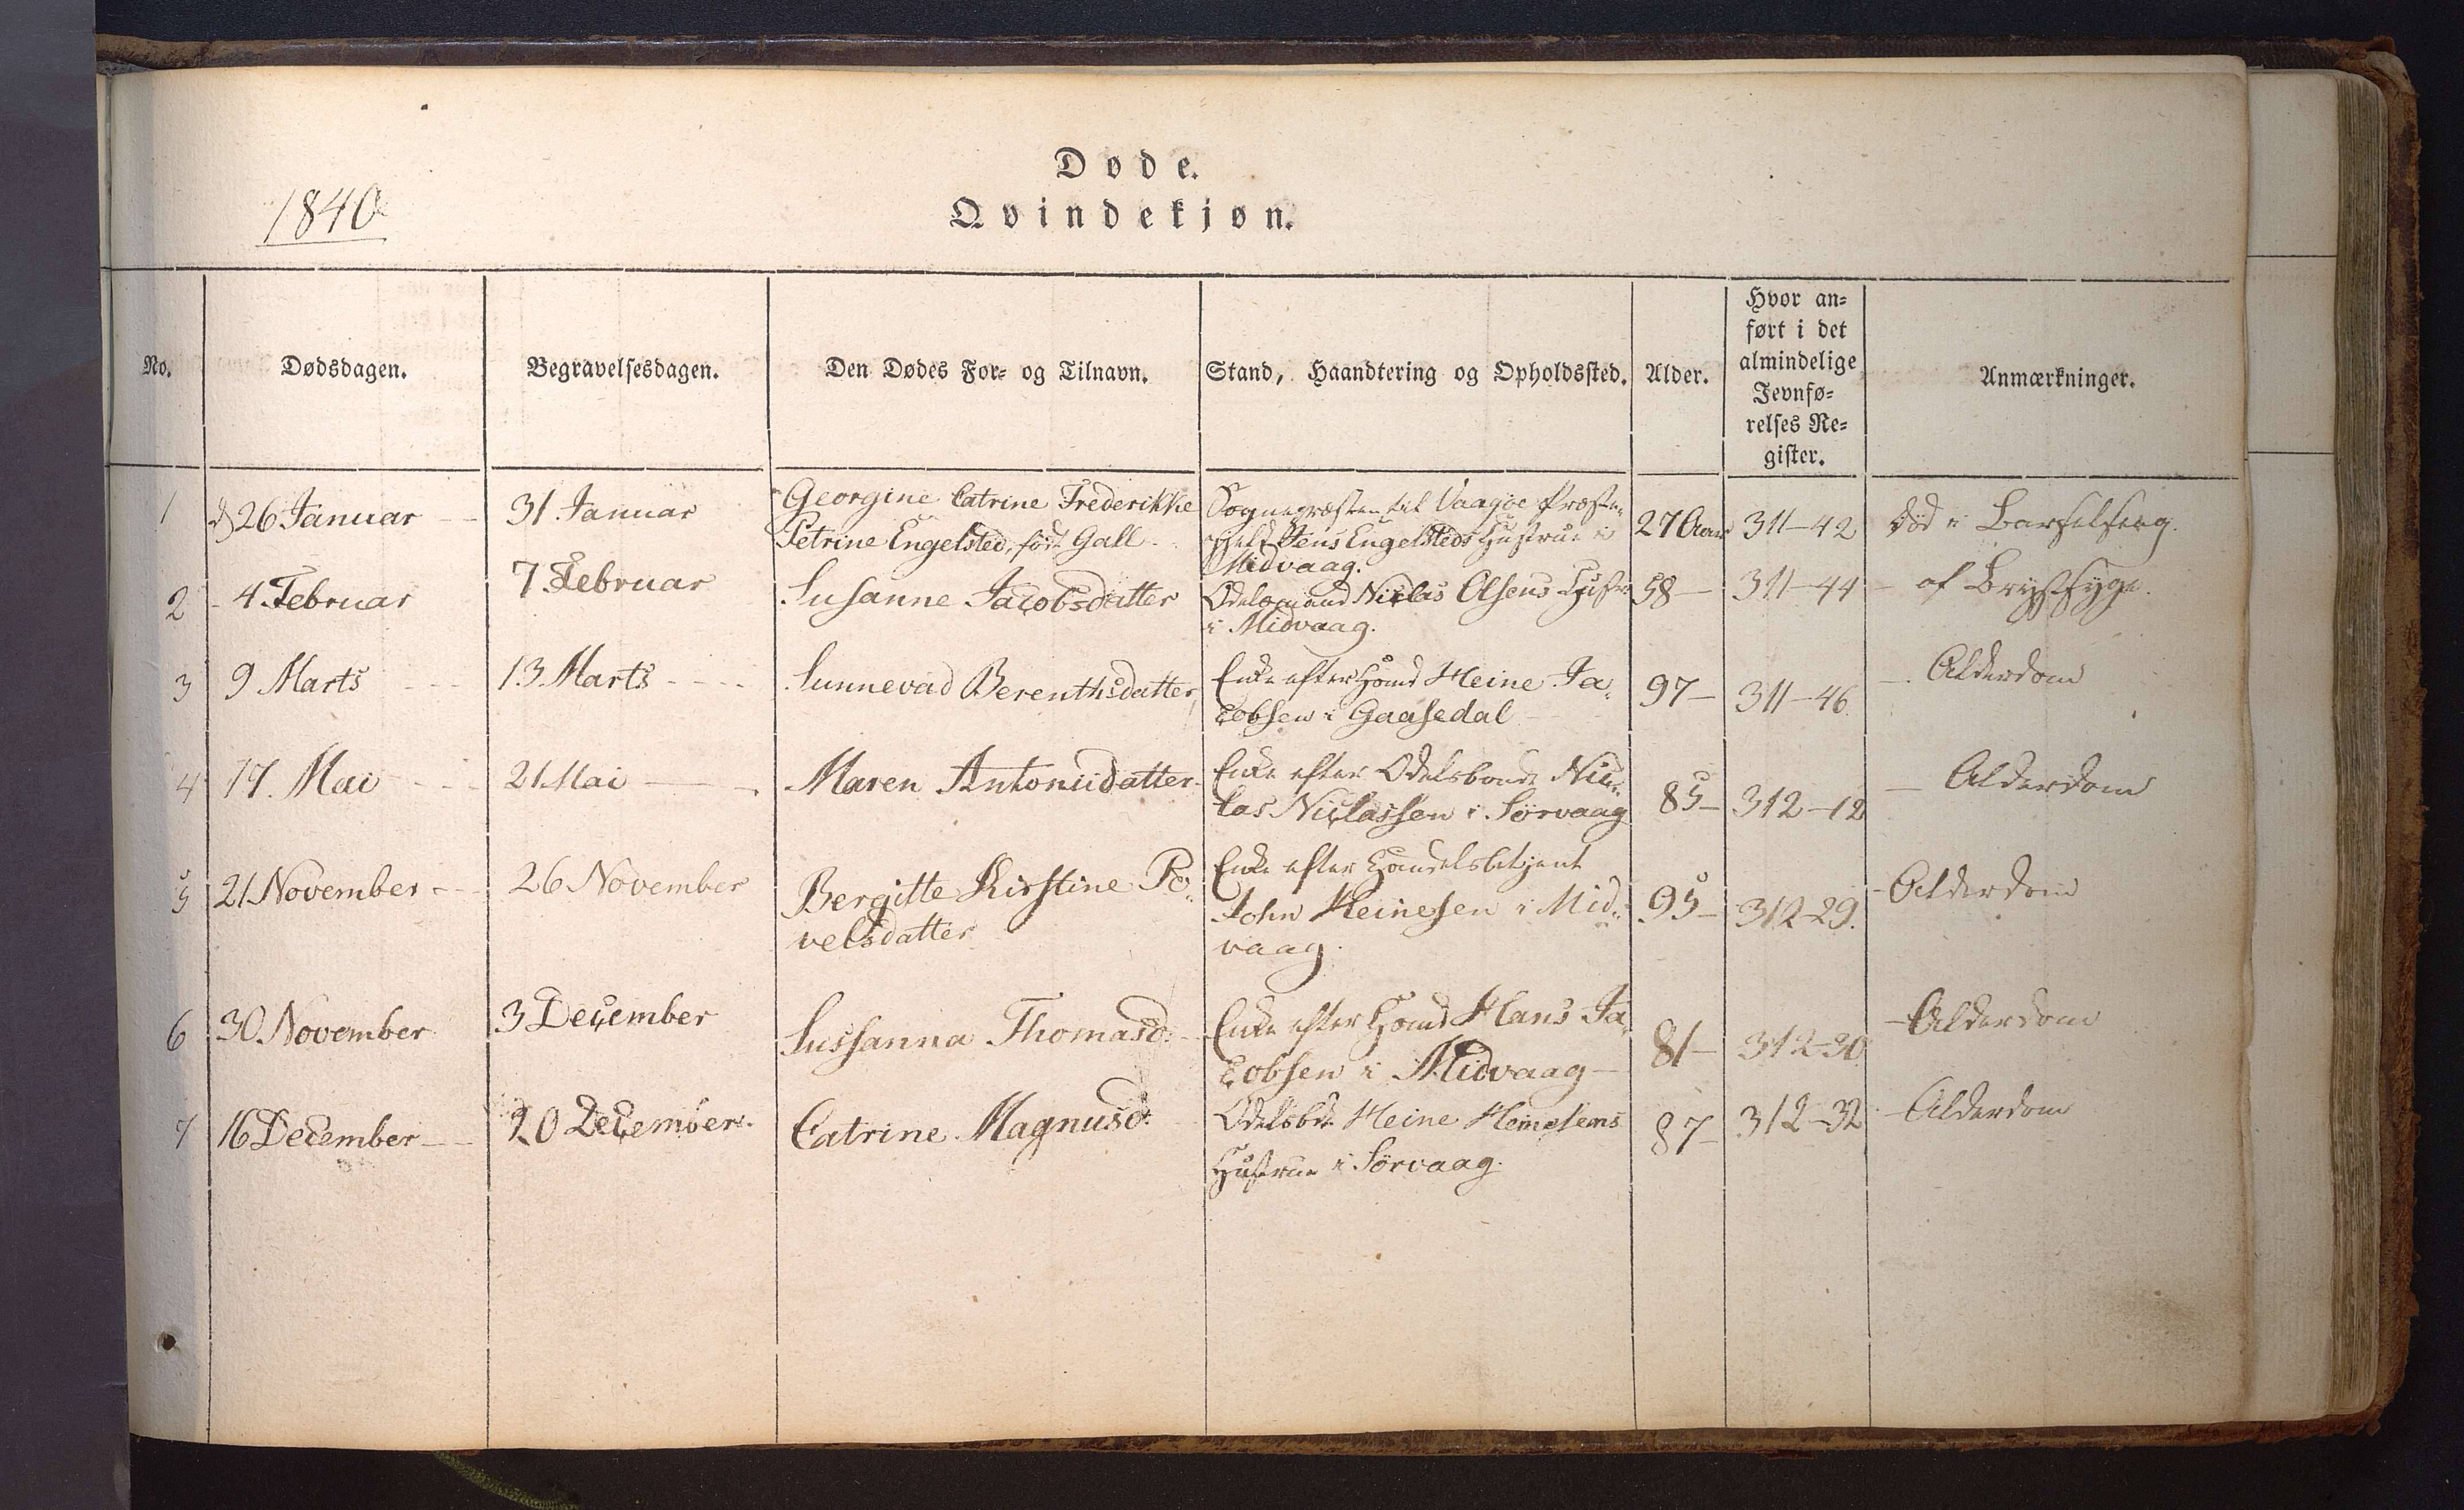 Døde.
1840
Qvindekjøn.
No.
Dødsdagen.
Begravelsesdagen.
Den Dødes For- og Tilnavn.
Stand, Haandtering og Opholdssted.
Alder.
Hvor an=
ført i det
almindelige
Jevnfø=
relses Re=
gister.
Anmærkninger.
1 d 26 Januar 31. Januar Georgine Catrine Frederikke Sognepræsten til Vaagøe Præste- 27 Aar 311-42 Død i Barselseng.
Petrine Engelsted, født Gall. gjeld Jens Engelsteds Hustrue i
Midvaag.
2 4. Februar 7. Februar Susanne Jacobsdatter Odelsmand Niclas Olsens Hustr 58 - 311-44 - af Brystsyge.
i Midvaag.
3 9 Marts 13. Marts Sunnevad Berenthsdatter Enke efter Huusmd Heine Ja- 97 - 311-46 - Alderdom
cobsen i Gaasedal
4 17. Mai 21 Mai Maren Antoniidatter Enke efter Odelsbonde Nic- 85 - 312-12 - Alderdom
las Niclassen i Sørvaag
5 21 November 26 November Bergitte Kirstine Po- Enke efter Handelsbetjent 95 - 312-29. - Alderdom
velsdatter John Heinesen i Mid-
vaag.
6 30. November 3 December Sussanna Thomasd: Enke efter Huusmd Hans Ja- 81 - 312-30 - Alderdom
cobsen i Midvaag -
7 16 December 20 December Catrine Magnusd: Odelsbd: Heine Heinesens 87 - 312-32 - Alderdom
Hustrue i Sørvaag.